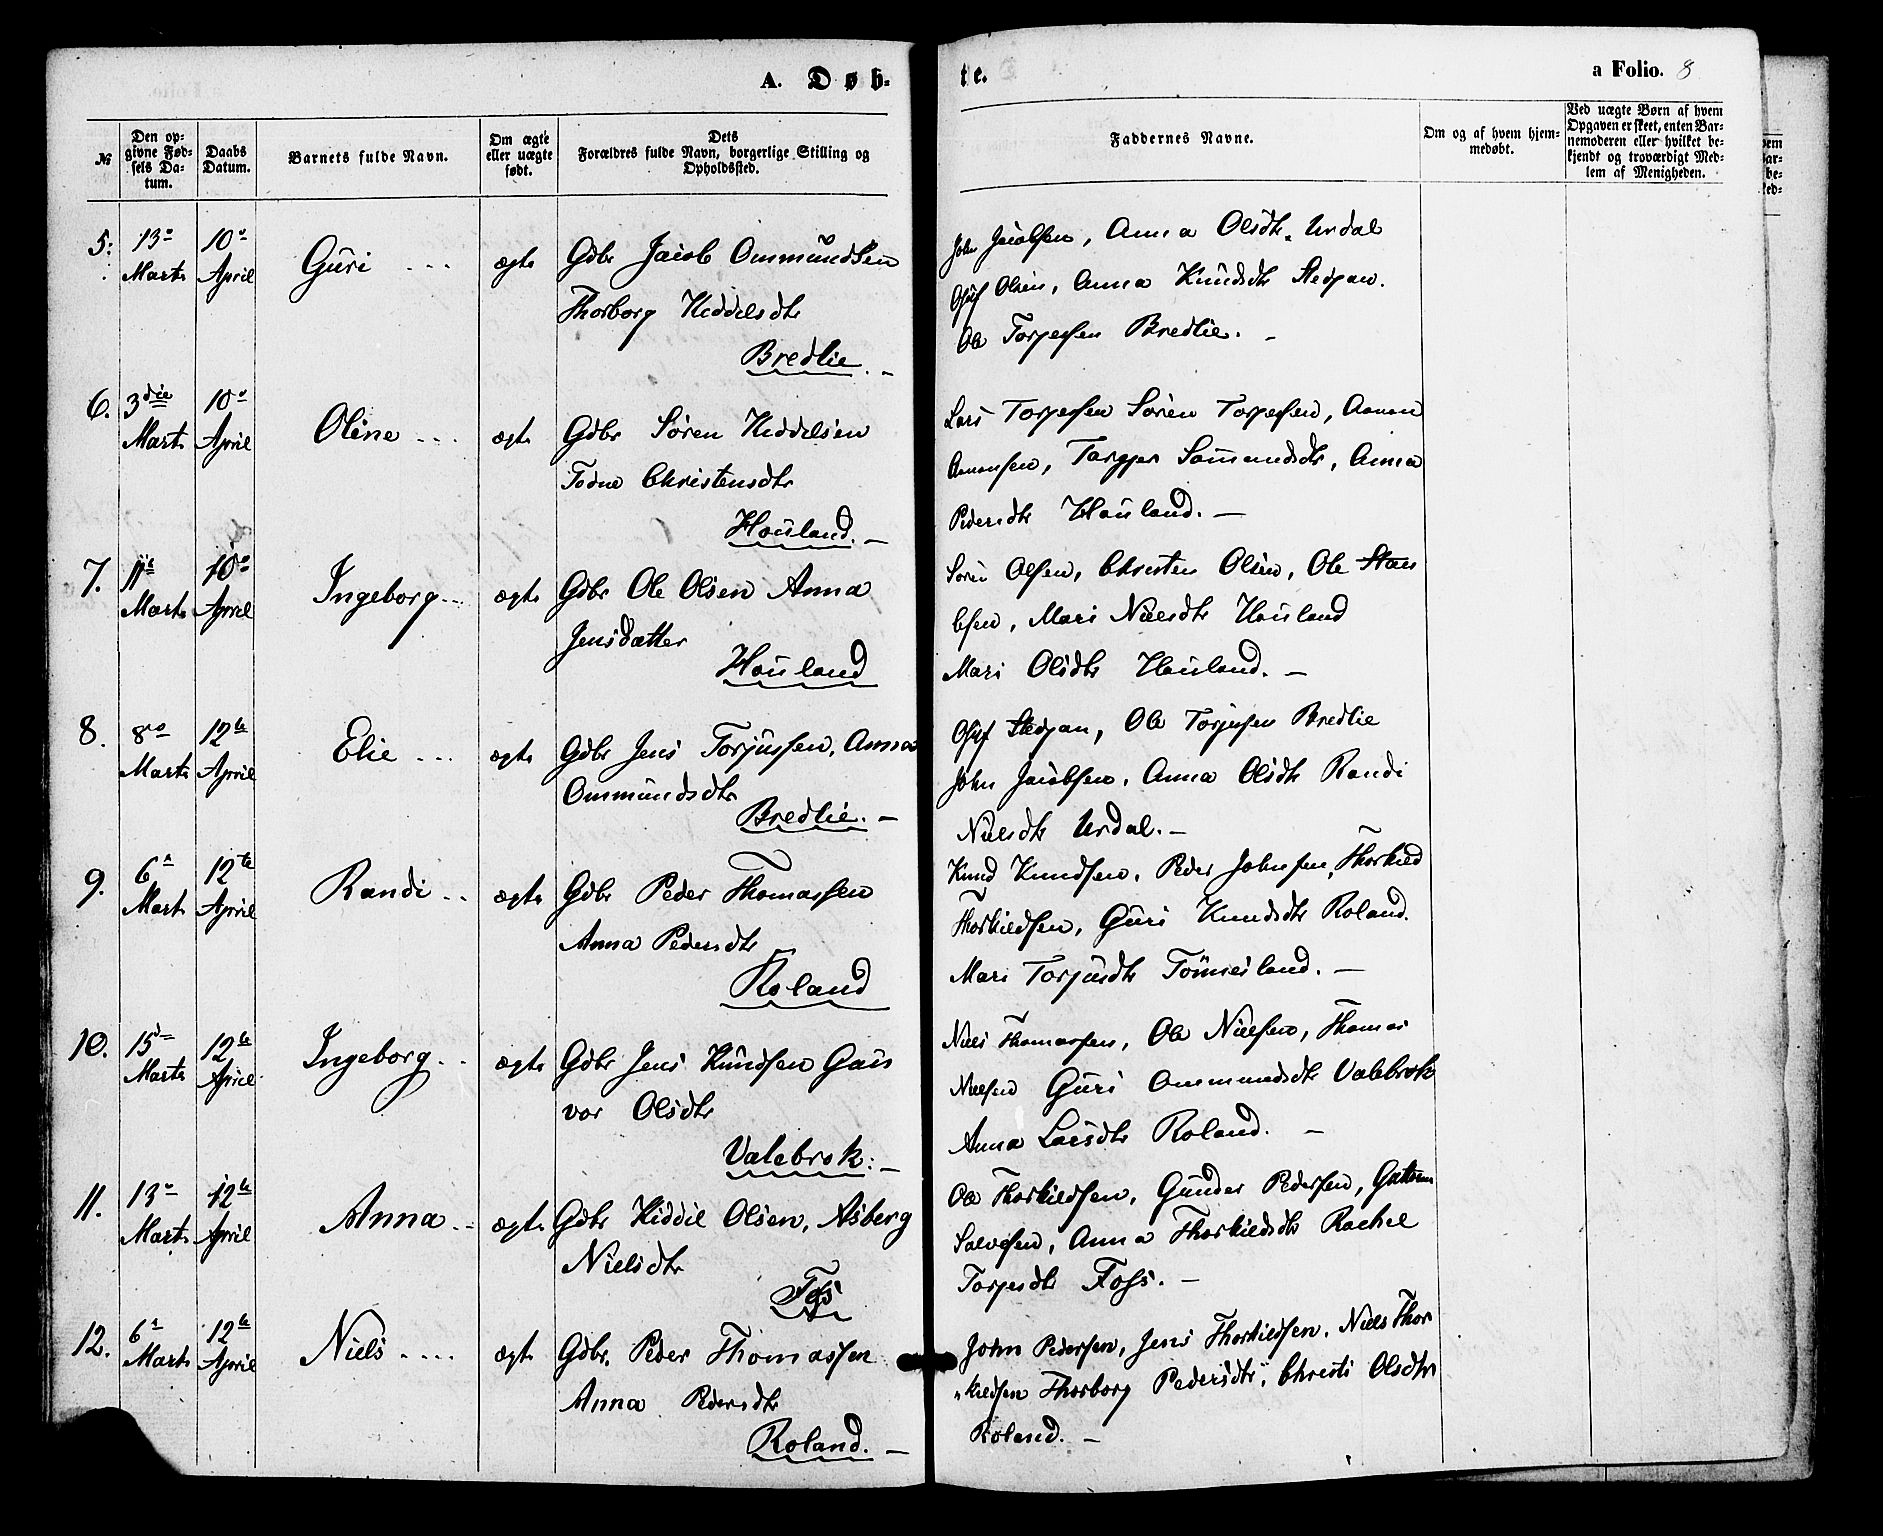 A. Døb-
te.
a Folio. 8
№
Den op-
givne Fød-
sels Da-
tum.
Daabs
Datum.
Barnets fulde Navn.
Om ægte
eller uægte
født.
Dets
Forældres fulde Navn, borgerlige Stilling og
Opholdssted.
Faddernes Navne.
Om og af hvem hjem-
medøbt.
Ved uægte Børn af hvem
Opgaven er skeet, enten Bar-
nemoderen eller hvilket be-
kjendt og troværdigt Med-
lem af Menigheden.
5. 13de Marts 10de April Guri ægte
Gdbr Jacob Ommundsen
Thorborg Keddelsdtr
Bredlie.
John Jacobsen, Anna Olsdtr Urdal
Olsen, Anna Knudsdtr Stedjan.
Ole Torjesen Bredlie.
6. 3die Marts 10de April Oline ægte
Gdbr Søren Keddelsen
Todne Christensdtr
Houland.
Lars Torjesen Søren Torjesen, Aanen
Aanensen, Targjer Samundsdtr, Anna
Pedersdtr Houland.
7. 11te Marts 10de April Ingeborg ægte
Gdbr Ole Olsen Anna
Jensdatter
Houland
Søren Olsen, Christen Olsen, Ole
Mari Nielsdtr Houland
Mari Olsdtr Houland.
8. 8de Marts 12te April Elie ægte
Gdbr Jens Torjussen, Anna
Ommundsdtr
Bredlie.
Stedjan, Ole Torjusen Bredlie
John Jacobsen, Anna Olsdtr Randi
Nielsdtr Urdal.
9. 6te Marts 12te April Randi ægte
Gdbr Peder Thomassen
Anna Pedersdtr
Roland
Knud Knudsen, Peder Johnsen, Thorkild
Thorkildsen, Guri Knudsdtr Roland.
Mari Torjusdtr Tønnesland.
10. 15de Marts 12te April Ingeborg ægte
Gdbr Jens Knudsen Gun
vor Olsdtr
Valebrok.
Niels Thomassen, Ole Nielsen, Thomas
Nielsen Guri Ommundsdtr Valebrok
Anna Larsdtr Roland.
11. 13de Marts 12te April Anna ægte
Gdbr Kiddil Olsen, Asberg
Nielsdtr
Foss
Ole Thorkildsen, Gunder Pedersen,
Salvesen, Anna Thorkildsdtr Rachel
Torjesdtr Foss.
12. 6te Marts 12te April Niels ægte
Gdbr. Peder Thomassen
Anna Pedersdtr
Roland.
John Pedersen, Jens Thorkildsen, Niels Thor
kildsen Thorborg Pedersdtr, Christi Olsdtr
Roland.